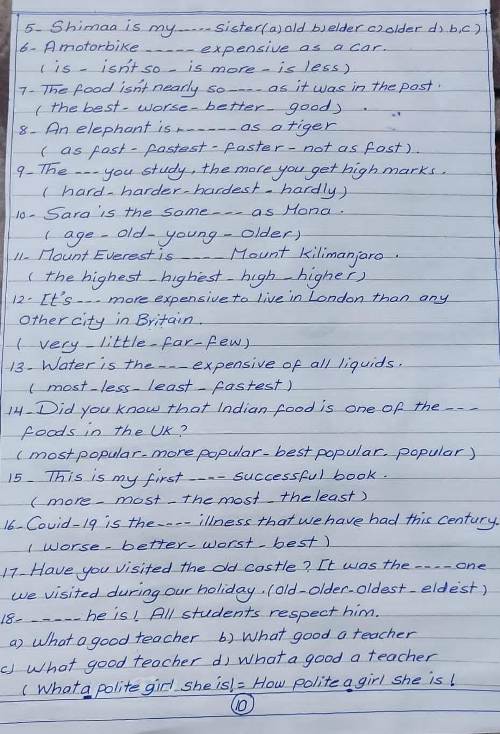 5- Shimaa is my ---- sister(a) old b) elder c) older d) b,c)
6- A motorbike ----- expensive as a car.
( is - isn't so - is more - is less )
7- The food isn't nearly so ---- as it was in the past.
( the best - worse - better - good ) .
8- An elephant is ------ as a tiger
( as fast - fastest - faster - not as fast ).
9- The --- you study, the more you get high marks.
( hard - harder - hardest - hardly )
10- Sara is the same --- as Mona.
( age - old - young - older )
11- Mount Everest is ---- Mount Kilimanjaro.
( the highest - highest - high - higher )
12- It's --- more expensive to live in London than any
other city in Britain.
( very - little - far - few )
13- Water is the --- expensive of all liquids.
( most - less - least - fastest )
14- Did you know that Indian food is one of the ---
foods in the UK?
( most popular - more popular - best popular - popular )
15- This is my first ---- successful book.
( more - most - the most - the least )
16- Covid-19 is the ---- illness that we have had this century.
( worse - better - worst - best )
17- Have you visited the old castle? It was the ---- one
we visited during our holiday. (old - older - oldest - eldest )
18- ------ he is! All students respect him.
a) What a good teacher b) What good a teacher
c) What good teacher d) What a good a teacher
( What a polite girl she is! = How polite a girl she is!
10